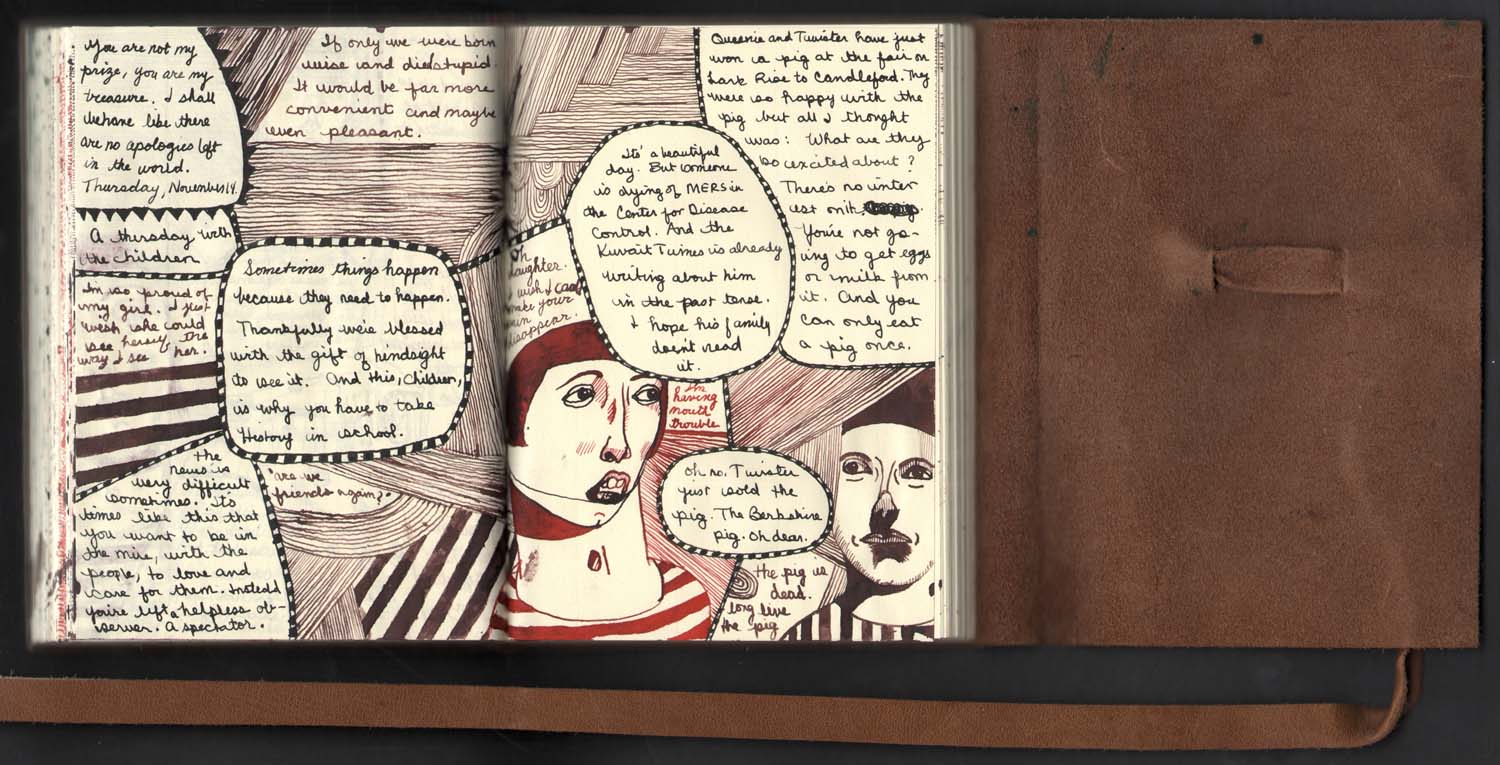 You are not my
prize, you are my
treasure. I shall
behave like there
are no apologies left
in the world.
Thursday, November 14.
A thursday with
the children
Im so proud of
my girl. I just
wish she could
see herself the
way I see her.
If only we were born
wise and die stupid.
It would be far more
convenient and maybe
even pleasant.
Sometimes things happen
because they need to happen.
Thankfully we're blessed
with the gift of hindsight
to see it. And this, children,
is why you have to take
History in school.
the
news is
very difficult
sometimes. Its
times like this that
you want to be in
the mix, with the
people, to love and
care for them. Instead
you're left a helpless ob-
server. A spectator.
"are we
friends again?"
Oh
daughter.
I wish I could
make your
pain
disappear.
Its' a beautiful
day. But someone
is dying of MERS in
the Center for Disease
Control. And the
Kuwait Times is already
writing about him
in the past tense.
I hope his family
doesn't read
it.
Queenie and Twister have just
won a pig at the fair on
Lark Rise to Candleford. They
were so happy with the
pig but all I thought
was: What are they
so excited about?
There's no inter
est on it.
You're not go-
ing to get eggs
or milk from
it. And you
can only eat
a pig once.
Im
having
mouth
trouble
Oh no. Twister
just sold the
pig. The Berkshire
pig. Oh dear.
the pig is
dead.
long live
the pig